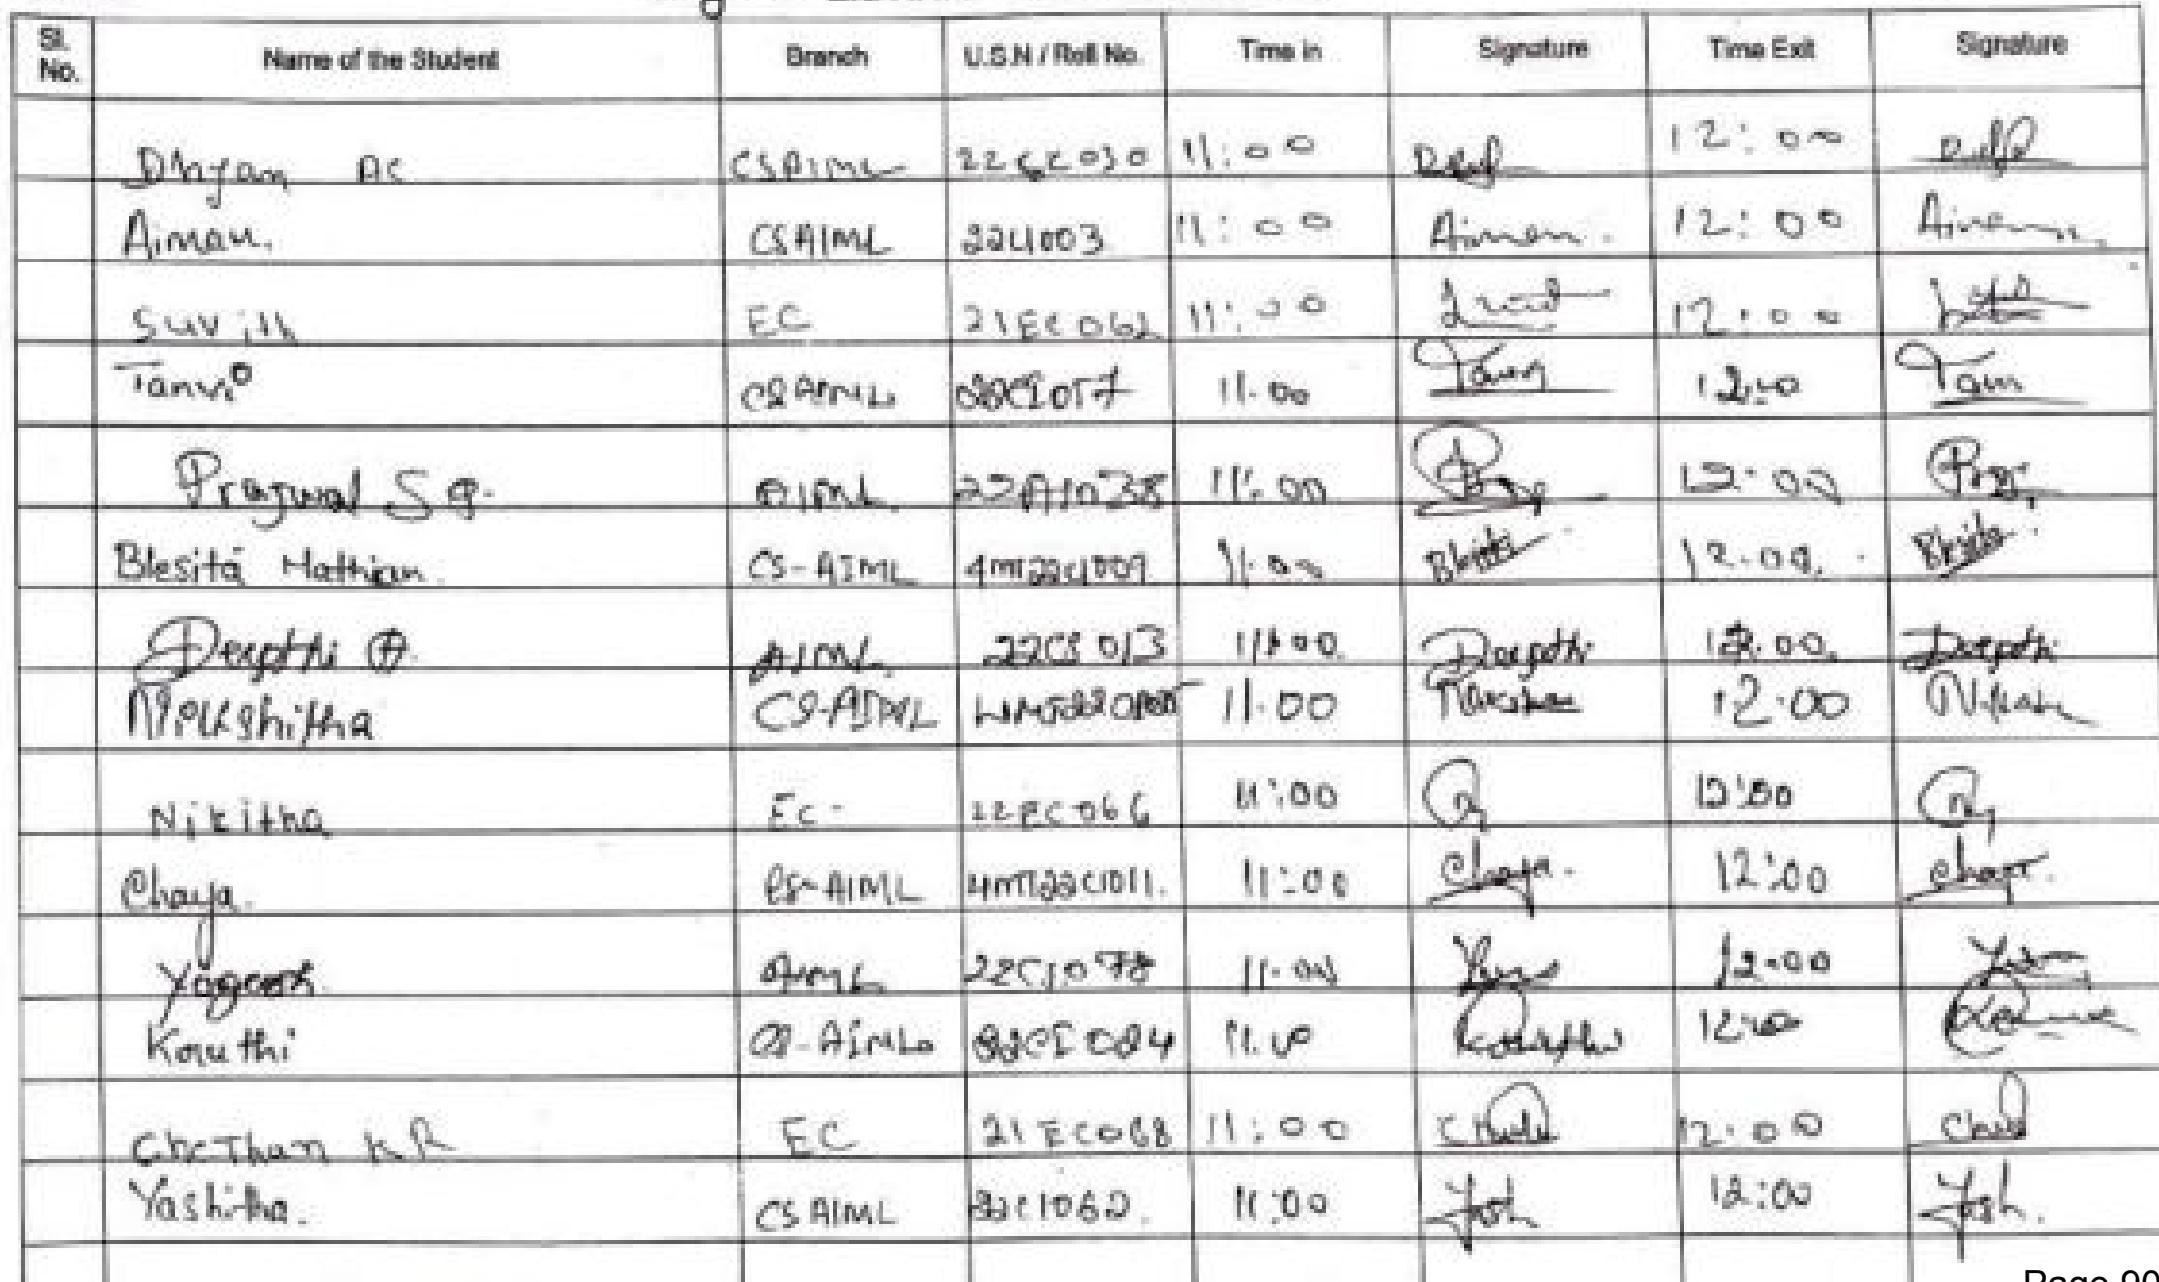 Sl. No. Name of the Student Branch U.S.N / Roll No. Time in Signature Time Exit Signature
Dhyan AC CSAIML 11:00 12:00
Aiman. CSAIML 22CI003 11:00 Aiman. 12:00 Aiman
Suvith EC 21EC062 11:00 12:00
Tanvi CSAIML 22CI057 11.00 Tanvi 12:00 Tanvi
Prajwal S G. AIML 22AI038 11:00 12:00 Praj
Blesita Mathian. CS-AIML 4MT22CI009 11:00 Blesita 12.00. Blesita
Deepthi AIML 22CS013 11:00. Deepthi 12.00. Deepthi
CS-AIML 11.00 12.00
Nikitha EC 22EC066 11:00 12:00
Chaya. CS-AIML 4MT22CI011. 11:00 Chaya. 12:00 Chaya.
Yogeesh. AIML 22CI078 11.00 12.00
CS-AIML 11.00 12:00
Chethan K R EC 21EC068 11:00 12:00
Yashitha. CSAIML 22CI062. 11:00 Yash 12:00 Yash.
Page 90